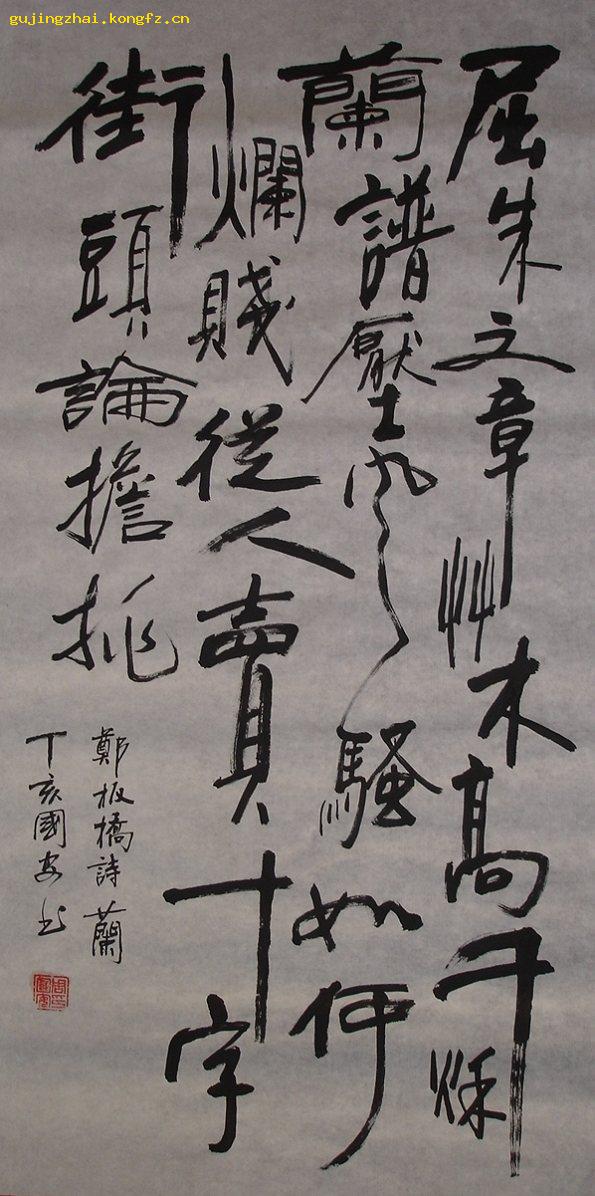 gujingzhai.kongfz.cn
屈朱文章艸木高千秌
蘭譜壓風騷如何
爛賤從人賣十字
街頭論擔挑
鄭板橋詩蘭
丁亥國安书